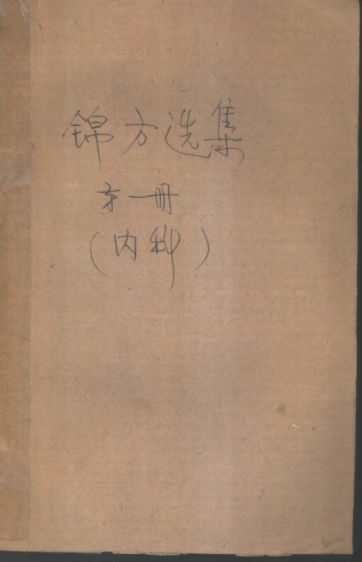 锦方选集
第一册
(内科)